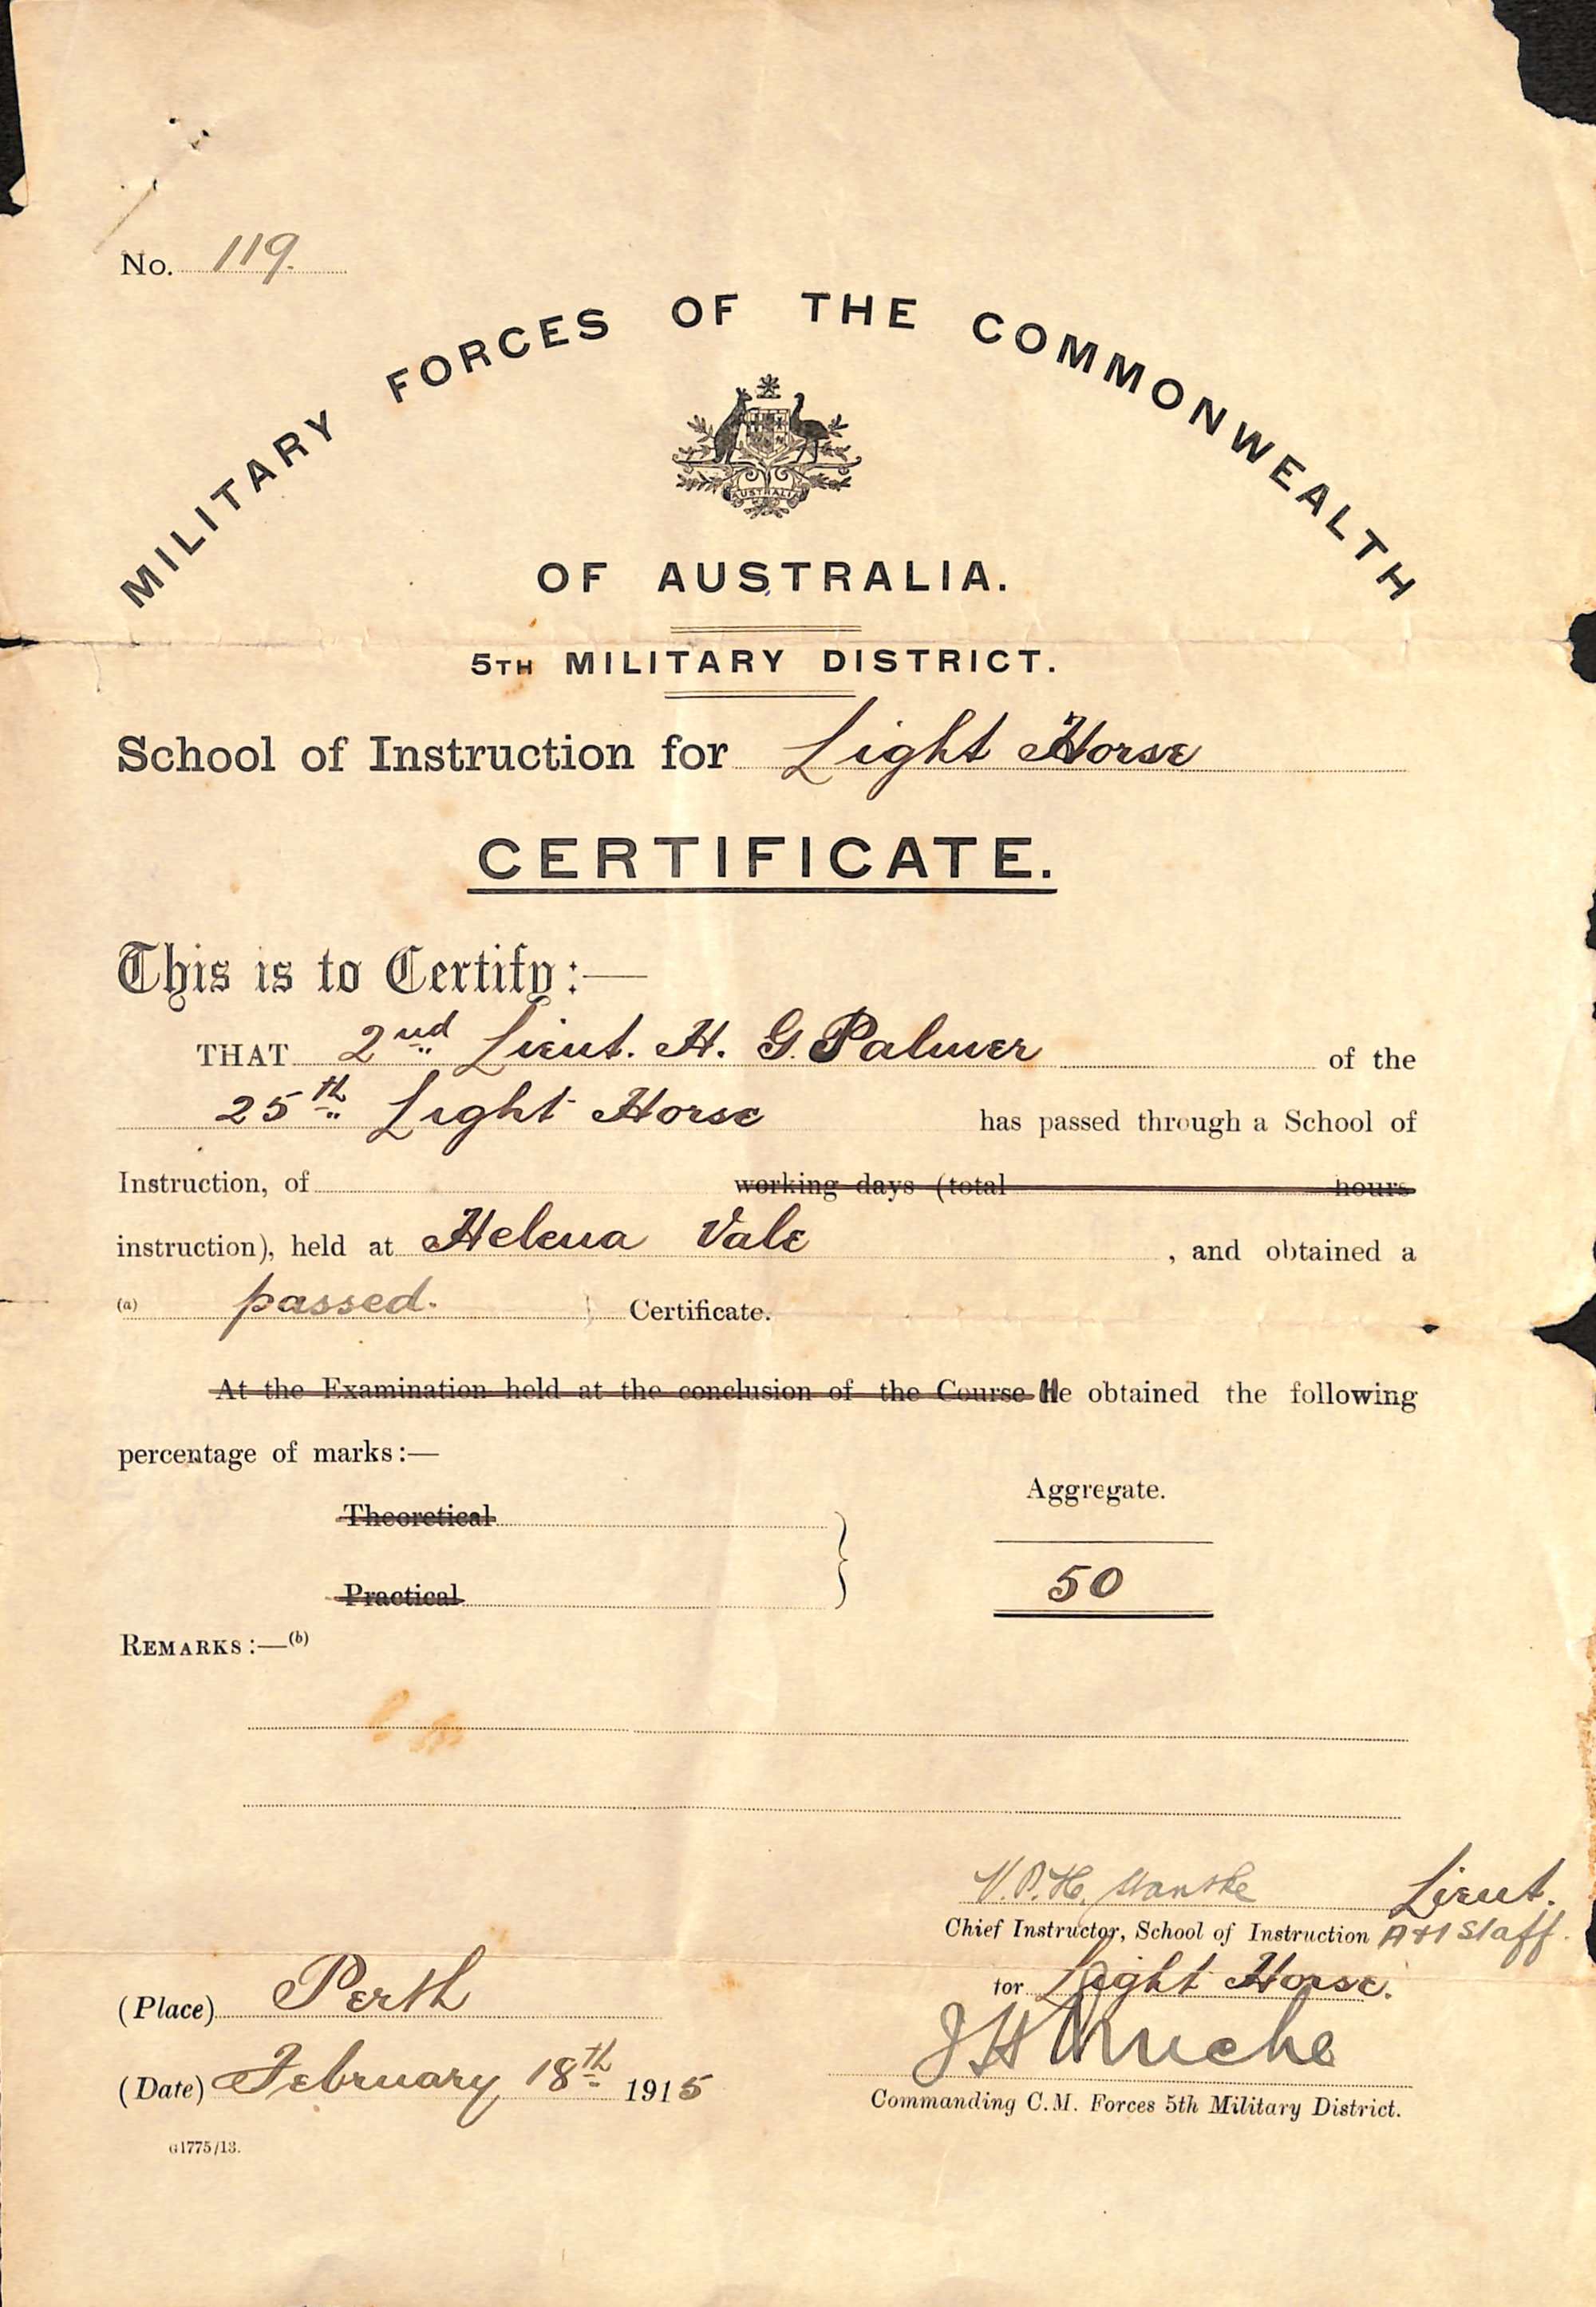 No. 119.
MILITARY FORCES OF THE COMMONWEALTH
AUSTRALIA
OF AUSTRALIA.
5TH MILITARY DISTRICT.
School of Instruction for Light Horse
CERTIFICATE.
This is to Certify:—
THAT 2nd Lieut. H. G. Palmer of the
25th Light Horse has passed through a School of
Instruction, of working days (total hours
instruction), held at Helena Vale , and obtained a
(a) passed. Certificate.
At the Examination held at the conclusion of the Course He obtained the following
percentage of marks:—
Aggregate.
Theoretical
50
Practical
REMARKS:—(b)
V.P.H. Lieut.
Chief Instructor, School of Instruction A & I Staff.
for Light Horse.
(Place) Perth
(Date) February 18th 1915
Commanding C.M. Forces 5th Military District.
G1775/13.